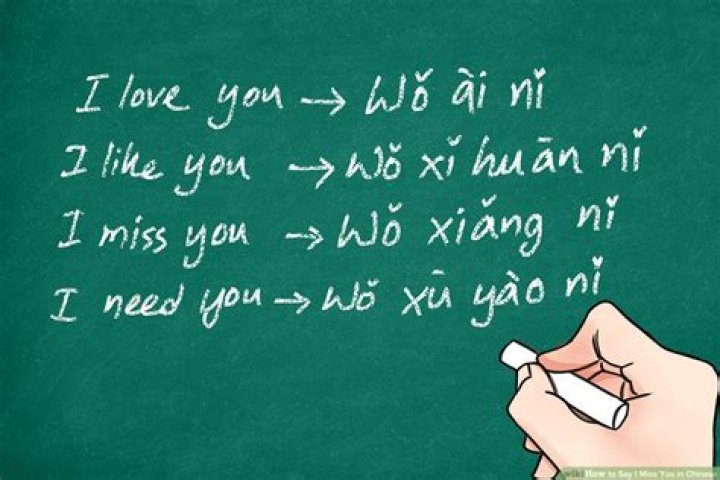 I love you → Wǒ ài nǐ
I like you → Wǒ xǐ huān nǐ
I miss you → Wǒ xiǎng nǐ
I need you → Wǒ xū yào nǐ
wiki How to Say I Miss You in Chinese